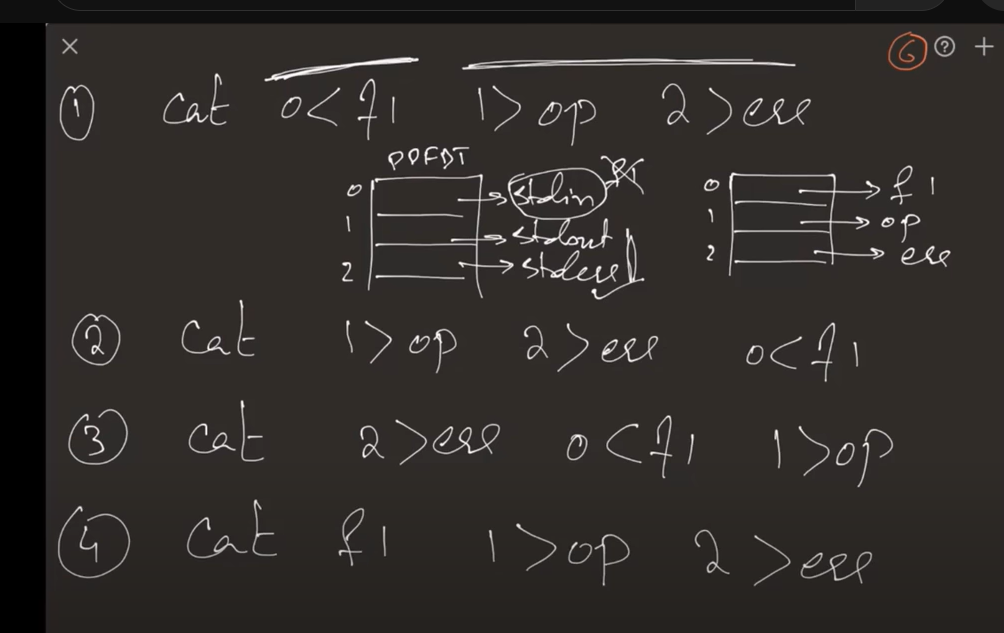 6
① cat 0<f1 1>op 2>err
PPFDT
0 stdin
1 stdout
2 stderr
0 f1
1 op
2 err
② cat 1>op 2>err 0<f1
③ cat 2>err 0<f1 1>op
④ cat f1 1>op 2>err